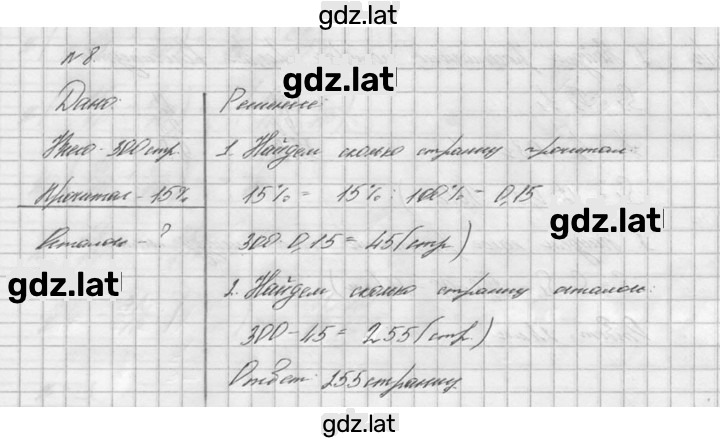 gdz.latl
№8.
gdz.latl
Дано:
Решение:
Итого - 300 стр.
1. Найдем сколько страниц прочитал:
Прочитал - 15%
15% = 15% : 100% = 0,15
gdz.latl
Осталось - ?
300 · 0,15 = 45 (стр.)
gdz.latl
2. Найдем сколько страниц осталось:
300 - 45 = 255 (стр.)
Ответ: 255 страниц.
gdz.latl